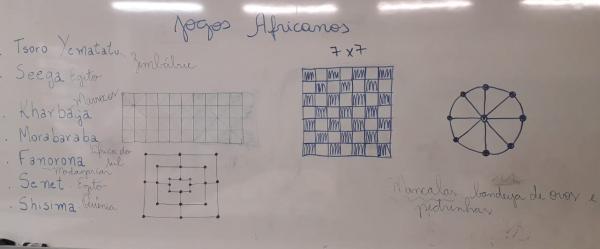 Jogos Africanos
. Tsoro Yematatu Zimbábue
. Seega Egito
Marrocos
. Kharbaga
. Morabaraba
África do Sul
. Fanorona
Madagascar
. Senet Egito
. Shisima Quênia
7x7
Mancalas bandeja de ovos e
pedrinhas